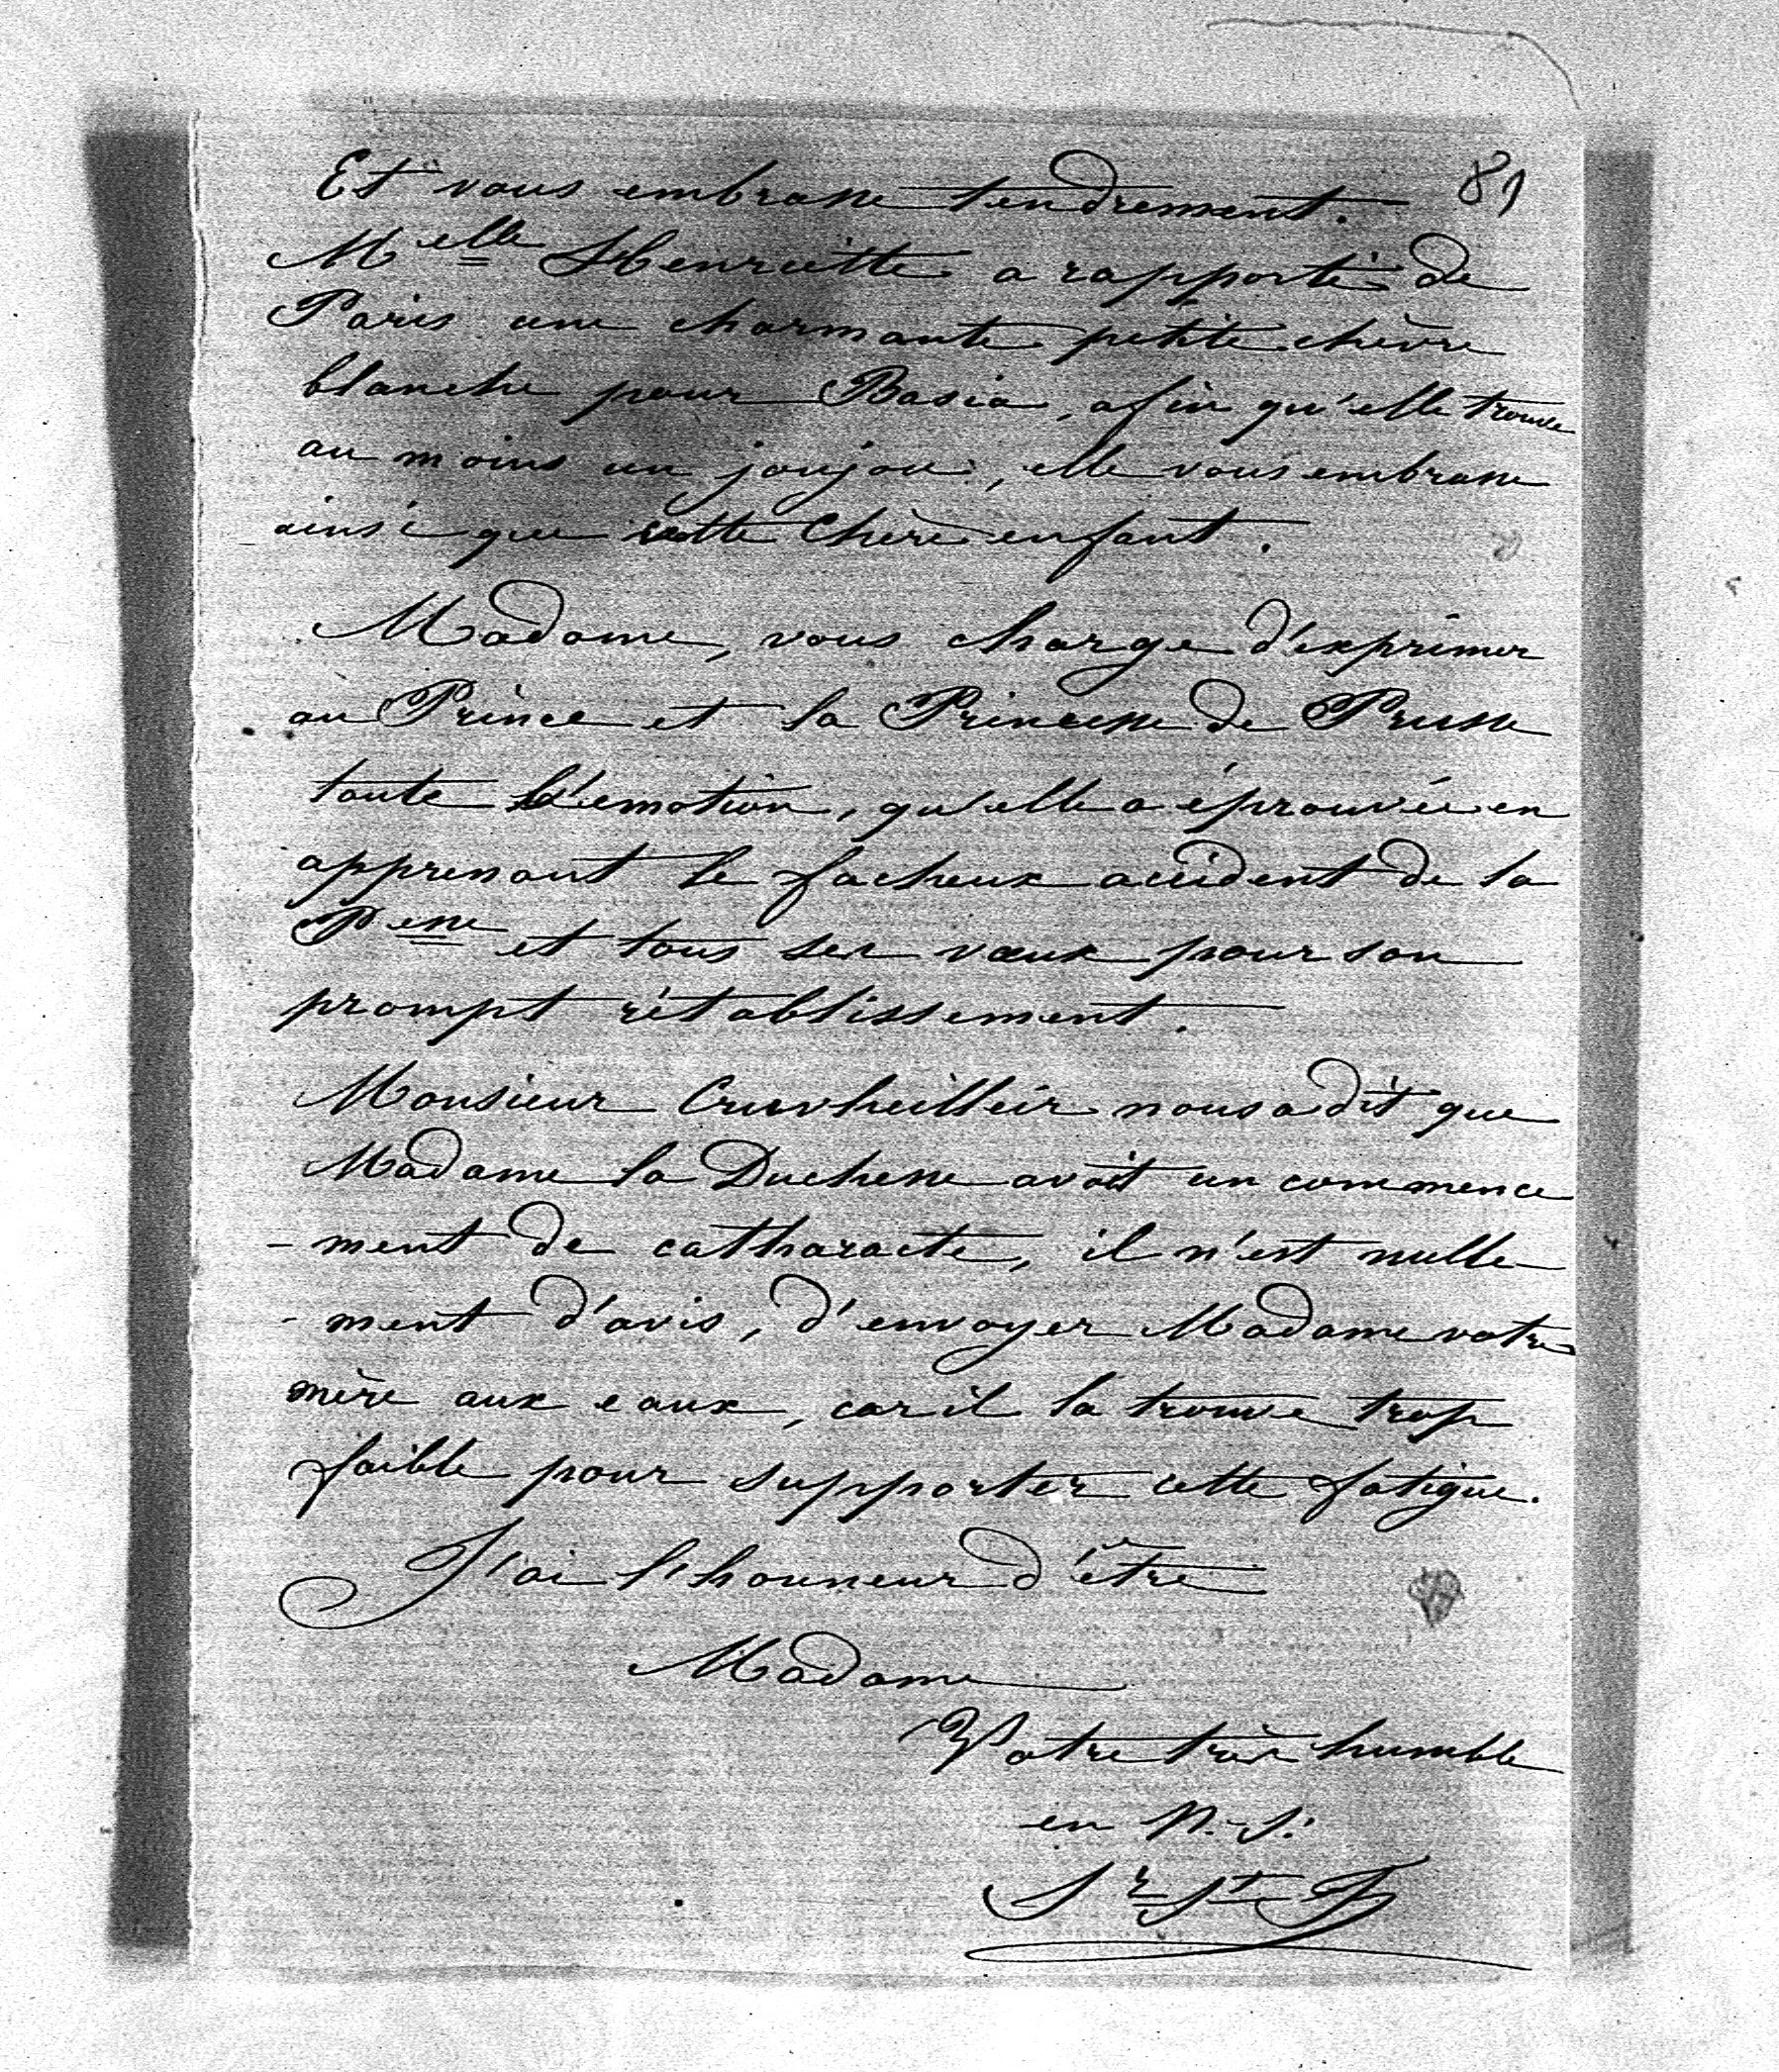 81
Et vous embrasse tendrement.
Melle Henriette a rapporté de
Paris une charmante petite chèvre
blanche pour Basia, afin qu'elle trouve
au moins un joujou, elle vous embrasse
ainsi que cette chère enfant.
Madame, vous charge d'exprimer
au Prince et la Princesse de Prusse
toute l'émotion, qu'elle a éprouvée en
apprenant le facheux accident de la
Pesse et tous ses vœux pour son
prompt rétablissement.
Monsieur Cruvheilleir nous a dit que
Madame la Duchesse avait un commence
- ment de catharacte, il n'est nulle-
- ment d'avis, d'envoyer Madame votre
mère aux eaux, car il la trouve trop
faible pour supporter cette fatigue.
J'ai l'honneur d'être
Madame
Votre très humble
en N. S.
Sr St